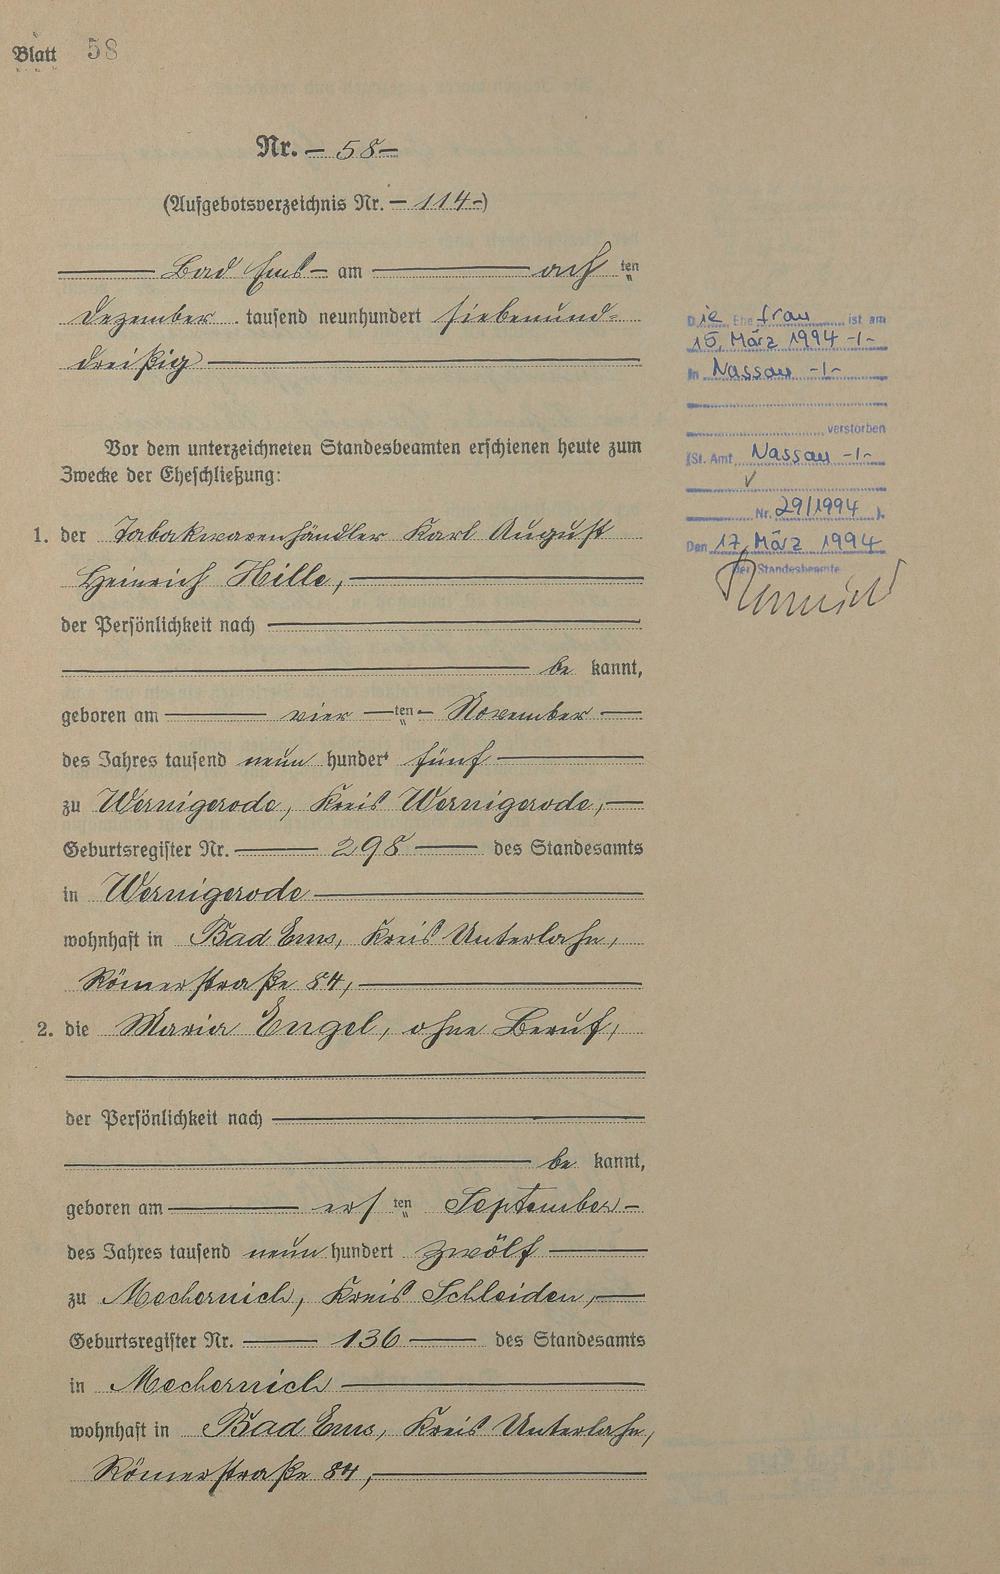 Blatt 58
Nr. – 58 –
(Aufgebotsverzeichnis Nr. – 114 –)
Bad Ems – am acht ten
Dezember tausend neunhundert siebenund-
dreißig
Vor dem unterzeichneten Standesbeamten erschienen heute zum
Zwecke der Eheschließung:
1. der Tabakwarenhändler Karl August
Heinrich Hille,
der Persönlichkeit nach
be kannt,
geboren am vier ten November
des Jahres tausend neun hundert fünf
zu Wernigerode, Kreis Wernigerode,
Geburtsregister Nr. 298 des Standesamts
in Wernigerode
wohnhaft in Bad Ems, Kreis Unterlahn,
Römerstraße 84,
2. die Maria Engel, ohne Beruf,
der Persönlichkeit nach
be kannt,
geboren am ers ten September
des Jahres tausend neun hundert zwölf
zu Mechernich, Kreis Schleiden,
Geburtsregister Nr. 136 des Standesamts
in Mechernich
wohnhaft in Bad Ems, Kreis Unterlahn,
Römerstraße 84,
Die Ehefrau ist am
15. März 1994 -/-
in Nassau -/-
verstorben
(St. Amt Nassau -/-
Nr. 29/1994 ).
Den 17. März 1994
der Standesbeamte